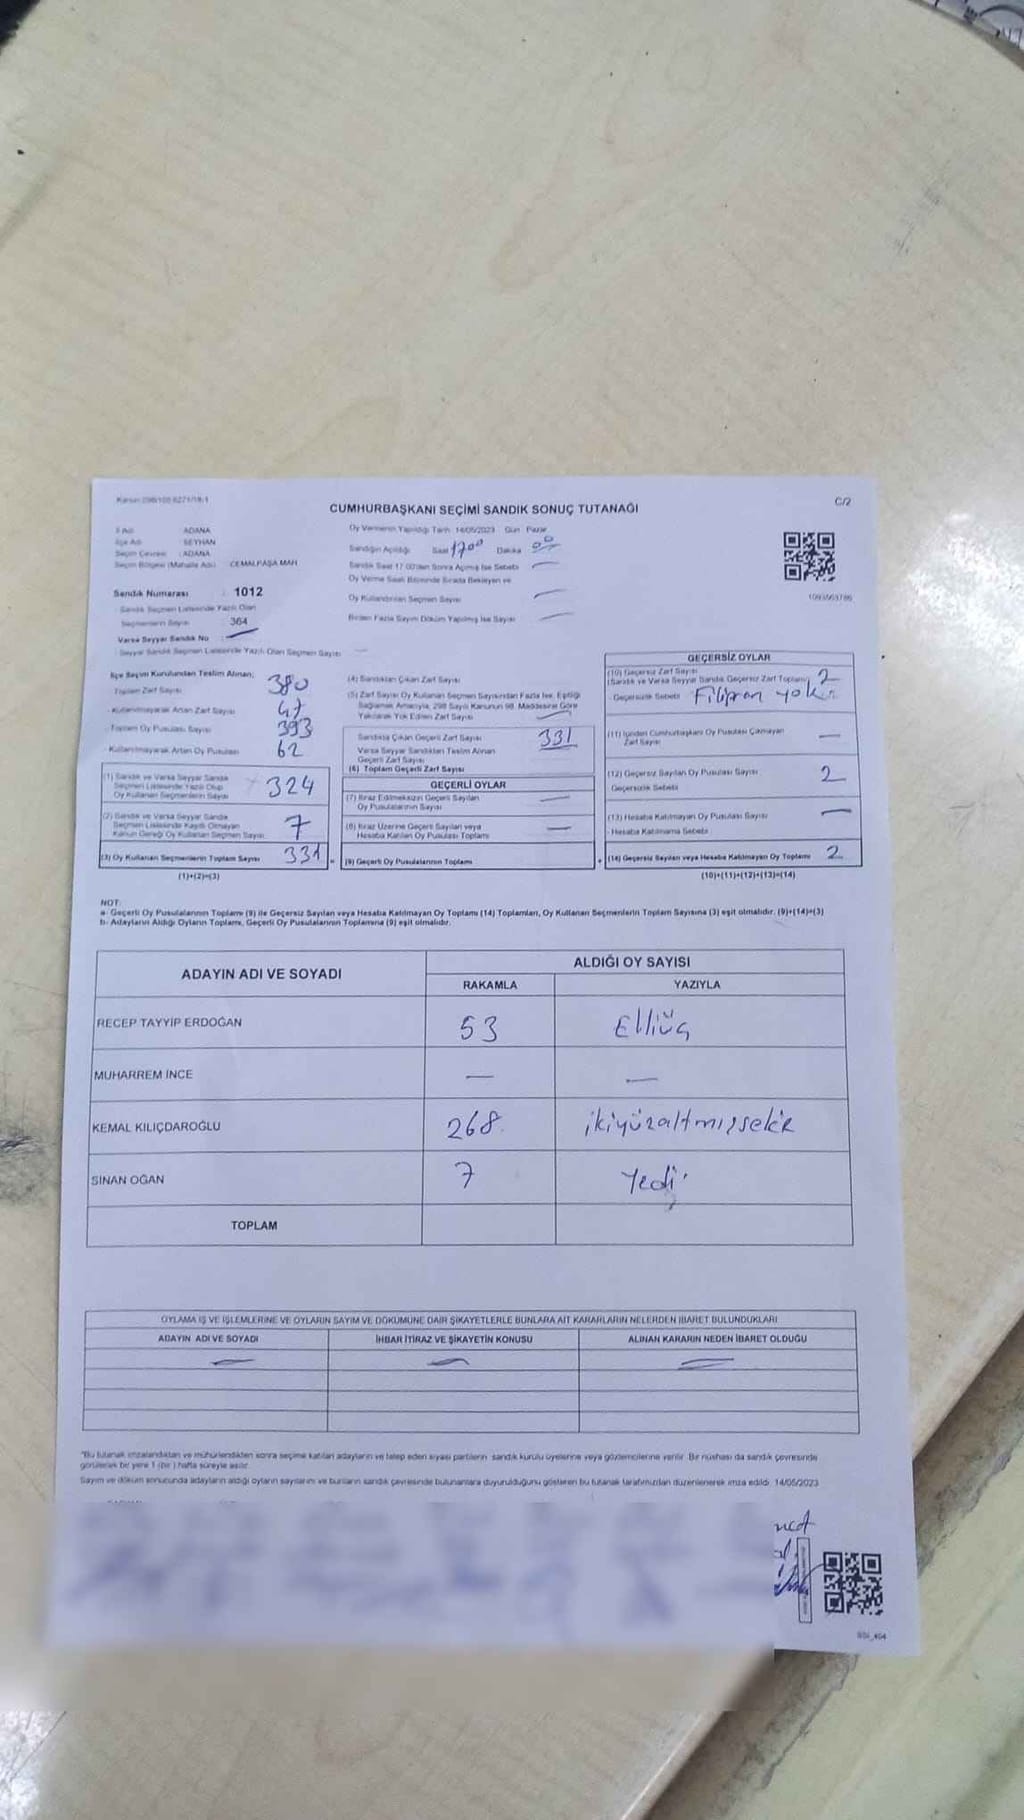 C/2
CUMHURBAŞKANI SEÇİMİ SANDIK SONUÇ TUTANAĞI
İli Adı ADANA
İlçe Adı SEYHAN
Seçim Çevresi : ADANA
Seçim Bölgesi (Mahalle Adı) CEMALPAŞA MAH
Sandık Numarası : 1012
Sandık Seçmen Listesinde Yazılı Olan
Seçmenlerin Sayısı 364
Varsa Seyyar Sandık No
Seyyar Sandık Seçmen Listesinde Yazılı Olan Seçmen Sayısı
Oy Vermenin Yapıldığı Tarih 14/05/2023 Gün Pazar
Sandığın Açıldığı Saat 1700 Dakika 00
Sandık Saat 17.00'den Sonra Açılmış İse Sebebi
Oy Verme Saati Bitiminde Sırada Bekleyen ve
Oy Kullandırılan Seçmen Sayısı
Birden Fazla Sayım Döküm Yapılmış İse Sayısı
1093563786
İlçe Seçim Kurulundan Teslim Alınan;
Toplam Zarf Sayısı 380
Kullanılmayarak Artan Zarf Sayısı 47
Toplam Oy Pusulası Sayısı 393
Kullanılmayarak Artan Oy Pusulası 62
(1) Sandık ve Varsa Seyyar Sandık
Seçmen Listesinde Yazılı Olup
Oy Kullanan Seçmenlerin Sayısı 324
(2) Sandık ve Varsa Seyyar Sandık
Seçmen Listesinde Kayıtlı Olmayan
Kanun Gereği Oy Kullanan Seçmen Sayısı 7
(3) Oy Kullanan Seçmenlerin Toplam Sayısı 331
(1)+(2)=(3)
(4) Sandıktan Çıkan Zarf Sayısı
(5) Zarf Sayısı Oy Kullanan Seçmen Sayısından Fazla İse, Eşitliği
Sağlamak Amacıyla, 298 Sayılı Kanunun 98. Maddesine Göre
Yakılarak Yok Edilen Zarf Sayısı
Sandıkta Çıkan Geçerli Zarf Sayısı 331
Varsa Seyyar Sandıktan Teslim Alınan
Geçerli Zarf Sayısı
(6) Toplam Geçerli Zarf Sayısı
GEÇERLİ OYLAR
(7) İtiraz Edilmeksizin Geçerli Sayılan
Oy Pusulalarının Sayısı
(8) İtiraz Üzerine Geçerli Sayılan veya
Hesaba Katılan Oy Pusulası Toplamı
(9) Geçerli Oy Pusulalarının Toplamı
GEÇERSİZ OYLAR
(10) Geçersiz Zarf Sayısı
(Sandık ve Varsa Seyyar Sandık Geçersiz Zarf Toplamı) 2
Geçersizlik Sebebi Filigran yok
(11) İçinden Cumhurbaşkanı Oy Pusulası Çıkmayan
Zarf Sayısı
(12) Geçersiz Sayılan Oy Pusulası Sayısı 2
Geçersizlik Sebebi
(13) Hesaba Katılmayan Oy Pusulası Sayısı
Hesaba Katılmama Sebebi
(14) Geçersiz Sayılan veya Hesaba Katılmayan Oy Toplamı 2
(10)+(11)+(12)+(13)=(14)
NOT:
a- Geçerli Oy Pusulalarının Toplamı (9) ile Geçersiz Sayılan veya Hesaba Katılmayan Oy Toplamı (14) Toplamları, Oy Kullanan Seçmenlerin Toplam Sayısına (3) eşit olmalıdır. (9)+(14)=(3)
b- Adayların Aldığı Oyların Toplamı, Geçerli Oy Pusulalarının Toplamına (9) eşit olmalıdır.
ADAYIN ADI VE SOYADI
ALDIĞI OY SAYISI
RAKAMLA YAZIYLA
RECEP TAYYİP ERDOĞAN 53 Elliüç
MUHARREM İNCE — —
KEMAL KILIÇDAROĞLU 268 ikiyüzaltmışsekiz
SİNAN OĞAN 7 Yedi
TOPLAM
OYLAMA İŞ VE İŞLEMLERİNE VE OYLARIN SAYIM VE DÖKÜMÜNE DAİR ŞİKAYETLERLE BUNLARA AİT KARARLARIN NELERDEN İBARET BULUNDUKLARI
ADAYIN ADI VE SOYADI İHBAR İTİRAZ VE ŞİKAYETİN KONUSU ALINAN KARARIN NEDEN İBARET OLDUĞU
"Bu tutanak imzalandıktan ve mühürlendikten sonra seçime katılan adayların ve talep eden siyasi partilerin sandık kurulu üyelerine veya gözlemcilerine verilir. Bir nüshası da sandık çevresinde
görülecek bir yere 1 (bir) hafta süreyle asılır.
Sayım ve döküm sonucunda adayların aldığı oyların sayılarını ve bunların sandık çevresinde bulunanlara duyurulduğunu gösteren bu tutanak tarafımızdan düzenlenerek imza edildi. 14/05/2023